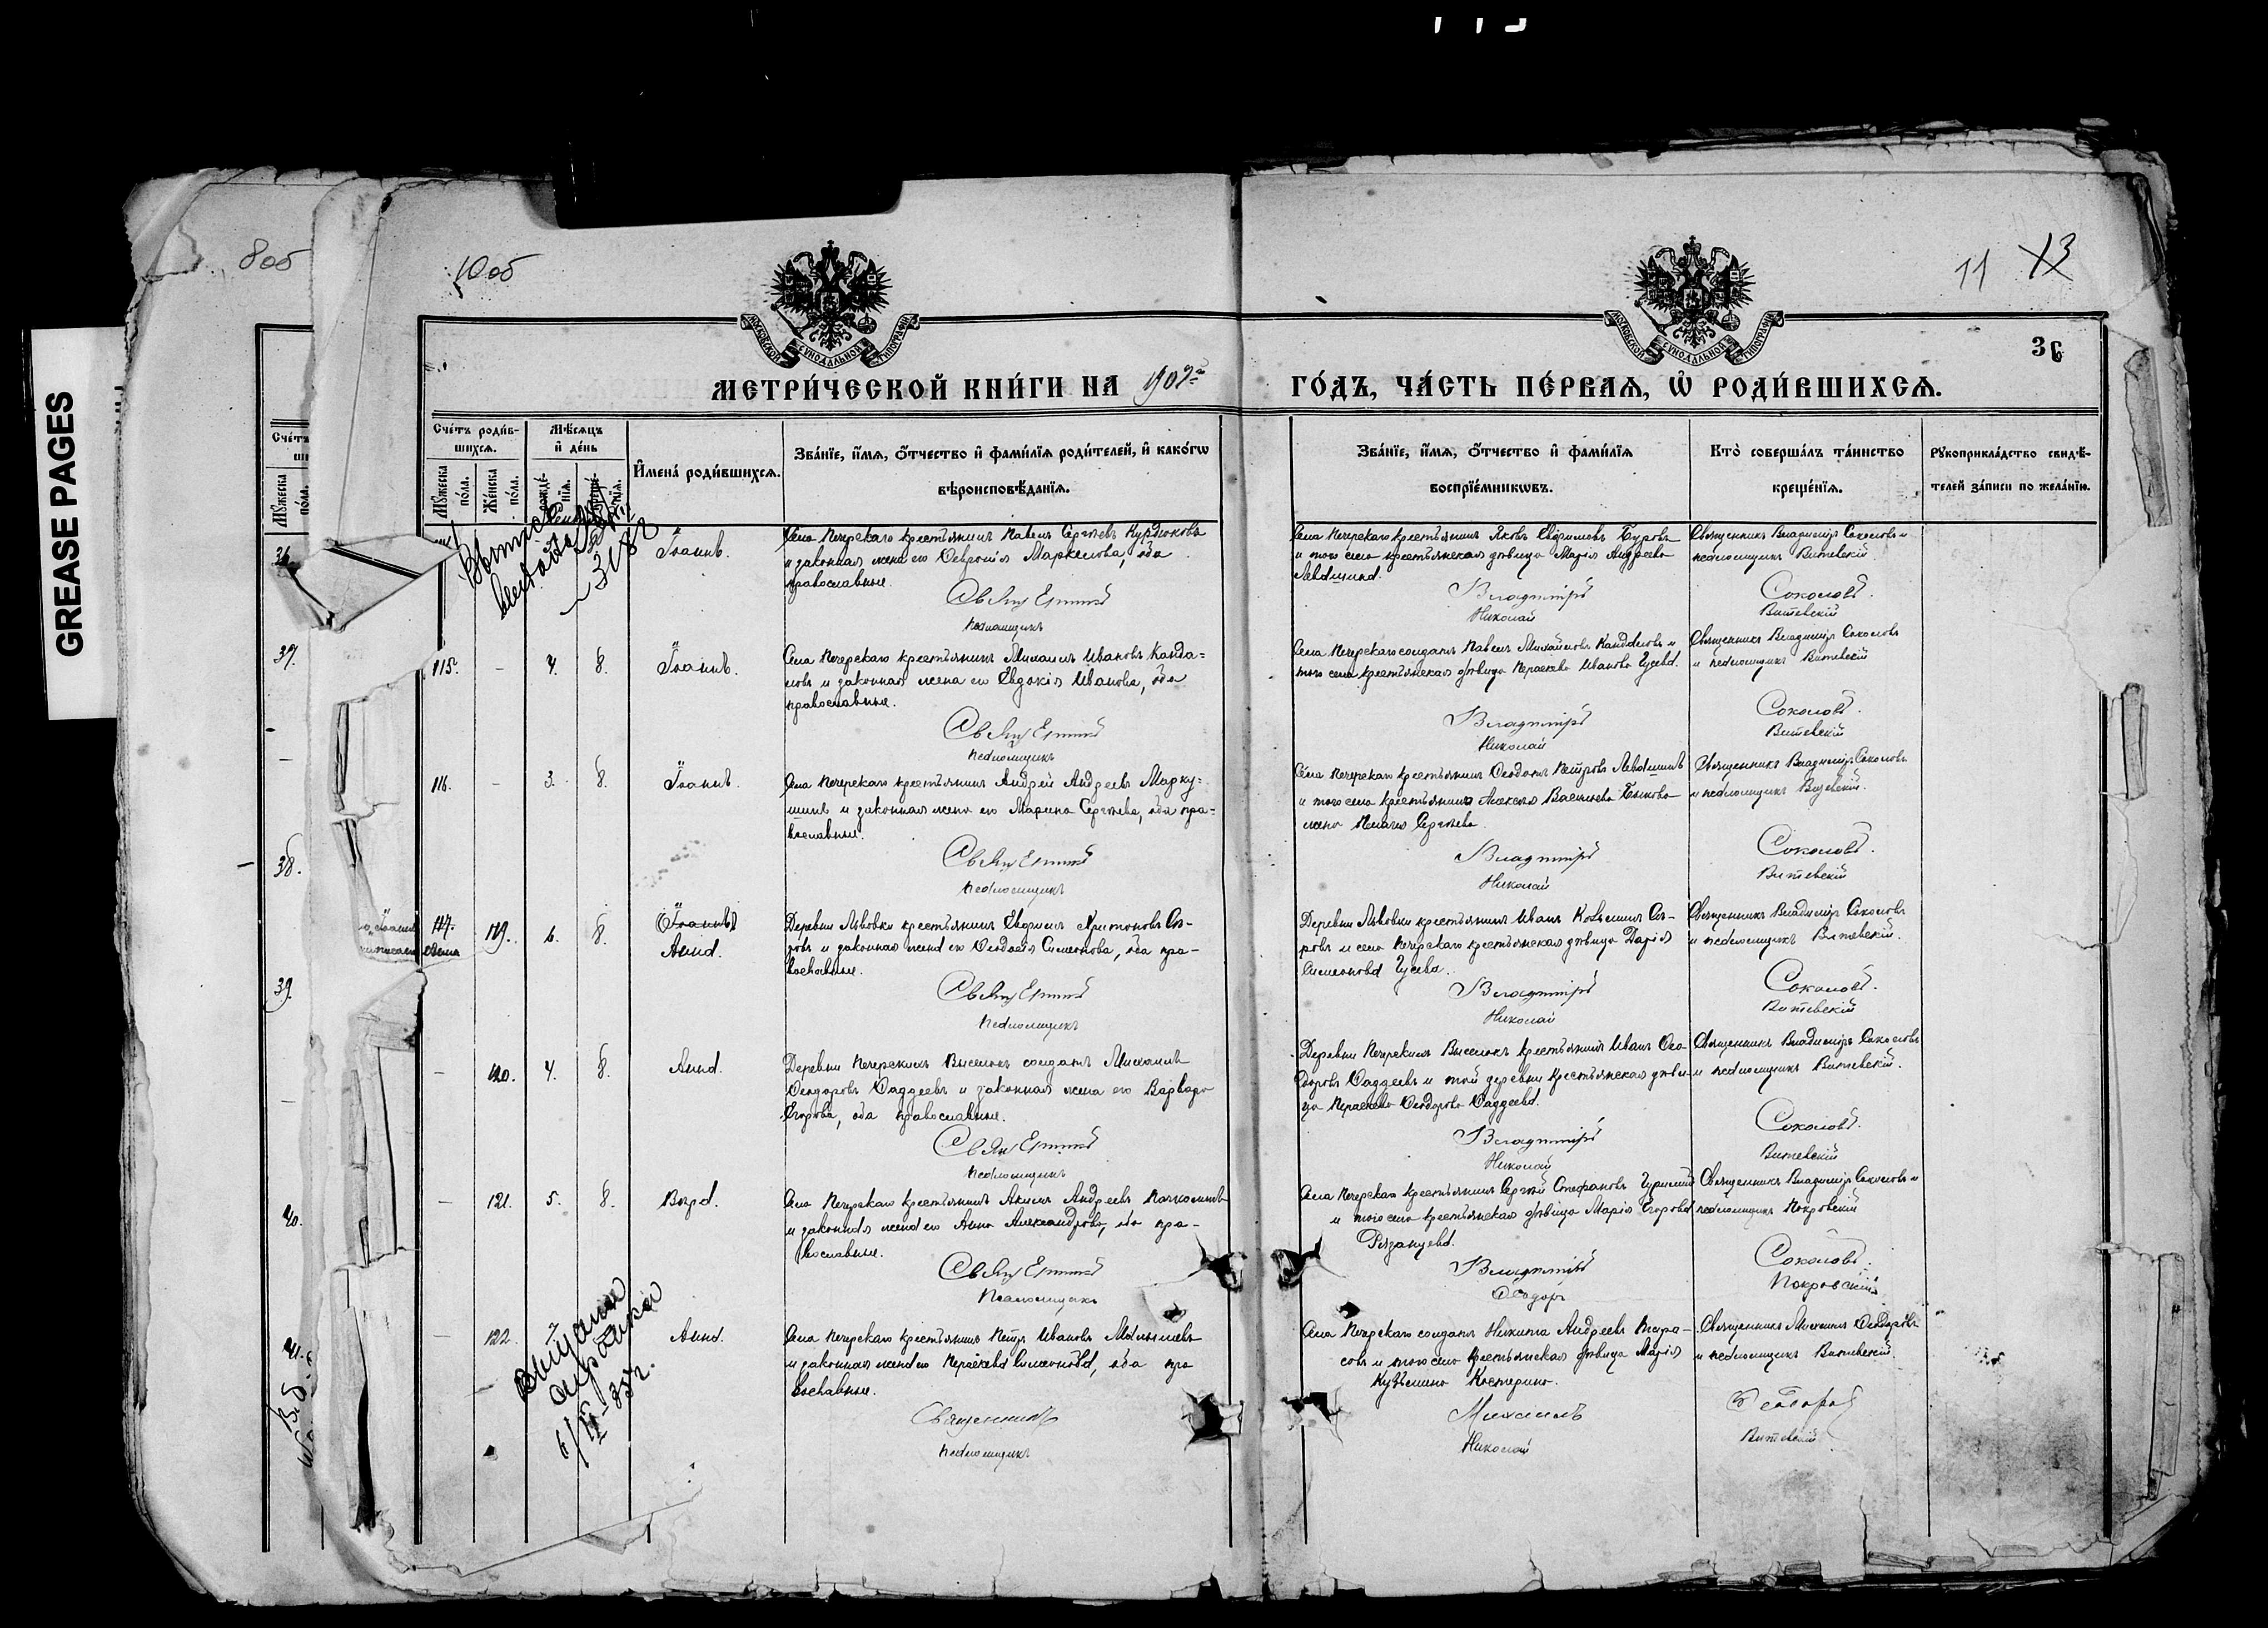 GREASE PAGES
8 об
10 об
11
13
36
МОСКОВСКОЙ СѴНОДАЛЬНОЙ ТИПОГРАФІИ
МОСКОВСКОЙ СѴНОДАЛЬНОЙ ТИПОГРАФІИ
МЕТРИ́ЧЕСКОЙ КНИ́ГИ НА 1907й ГО́ДЪ, ЧА́СТЬ ПЕ́РВАѦ, Ѡ҆ РОДИ́ВШИХСѦ.
Сче́тъ роди́в-
шихсѧ.
Мѣ́сѧцъ
и҆ де́нь
Мꙋ́жеска
по́ла.
Же́нска
по́ла.
И҆мена̀ роди́вшихсѧ.
Зва́нїе, и҆́мѧ, ѻ҆́тчество и҆ фами́лїѧ роди́телей, и҆ како́гѡ
вѣроисповѣ́данїѧ.
Зва́нїе, и҆́мѧ, ѻ҆́тчество и҆ фами́лїѧ
воспрїе́мникѡвъ.
Кто̀ соверша́лъ та́инство
креще́нїѧ.
Рꙋкоприкла́дство свидѣ́-
телей за́писи по жела́нїю.
Іоаннъ.
Села Печерскаго крестьянинъ Павелъ Сергѣевъ Курдюковъ
и законная жена его Феврония Маркелова, оба
православные.
Священникъ
Псаломщикъ
Села Печерскаго крестьянинъ Яковъ Евфимиевъ Буровъ
и того села крестьянская дѣвица Марія Андреева
Левашина.
Владиміръ
Николай
Священникъ Владиміръ Соколовъ и
псаломщикъ Витевскій
Соколовъ.
Витевскій
115. - 4. 8. Іоаннъ.
Села Печерскаго крестьянинъ Михаилъ Ивановъ Канда=
ловъ и законная жена его Евдокія Иванова, оба
православные.
Священникъ
псаломщикъ
Села Печерскаго солдатъ Павелъ Михайловъ Кандаловъ и
того села крестьянская дѣвица Параскева Иванова Гусева.
Владиміръ
Николай
Священникъ Владиміръ Соколовъ
и псаломщикъ Витевскій
Соколовъ.
Витевскій
116. - 3. 8. Іоаннъ.
Села Печерскаго крестьянинъ Андрей Андреевъ Марку=
шинъ и законная жена его Марина Сергѣева, оба пра=
вославные.
Священникъ
псаломщикъ
Села Печерскаго крестьянинъ Феодотъ Петровъ Левашинъ
и того села крестьянина Алексѣя Васильева Быкова
жена Пелагія Сергѣева.
Владиміръ
Николай
Священникъ Владиміръ Соколовъ
и псаломщикъ Витевскій.
Соколовъ.
Витевскій
117. 119. 6. 8. Іоаннъ
Анна.
Деревни Львовки крестьянинъ Евфимій Харитоновъ Се-
ровъ и законная жена его Феодосія Симеонова, оба пра-
вославные.
Священникъ
псаломщикъ
Деревни Львовки крестьянинъ Иванъ Козьминъ Се-
ровъ и села Печерскаго крестьянская дѣвица Дарія
Симеонова Гусева.
Владиміръ
Николай
Священникъ Владиміръ Соколовъ
и псаломщикъ Витевскій.
Соколовъ.
Витевскій
- 120. 4. 8. Анна.
Деревни Печерскихъ Выселокъ солдатъ Михаилъ
Феодоровъ Фаддеевъ и законная жена его Варвара
Егорова, оба православные.
Священникъ
псаломщикъ
Деревни Печерскихъ Выселокъ крестьянинъ Иванъ Фео-
доровъ Фаддеевъ и той деревни крестьянская дѣви-
ца Параскева Феодорова Фаддеева.
Владиміръ
Николай
Священникъ Владиміръ Соколовъ
и псаломщикъ Витевскій.
Соколовъ.
Витевскій
- 121. 5. 8. Вѣра.
Села Печерскаго крестьянинъ Акимъ Андреевъ
и законная жена его Анна Александрова, оба пра-
вославные.
Священникъ
Псаломщикъ
Села Печерскаго крестьянинъ Сергѣй Стефановъ
и того села крестьянская дѣвица Марія Егорова
Рязанцева.
Владиміръ
Феодоръ
Священникъ Владиміръ Соколовъ и
псаломщикъ Покровскій
Соколовъ.
Покровскій
- 122. Анна.
Села Печерскаго крестьянинъ Петръ Ивановъ
и законная жена его Параскева Симеонова, оба пра
вославные.
Священникъ
псаломщикъ
Села Печерскаго солдатъ Никита Андреевъ Тара-
совъ и того села крестьянская дѣвица Марія
Кузьмина Костерина.
Михаилъ
Николай
Священникъ Михаилъ Феодоровъ
и псаломщикъ Витевскій.
Феодоровъ
Витевскій
Выдана
справка
37.
38.
39.
40.
41.